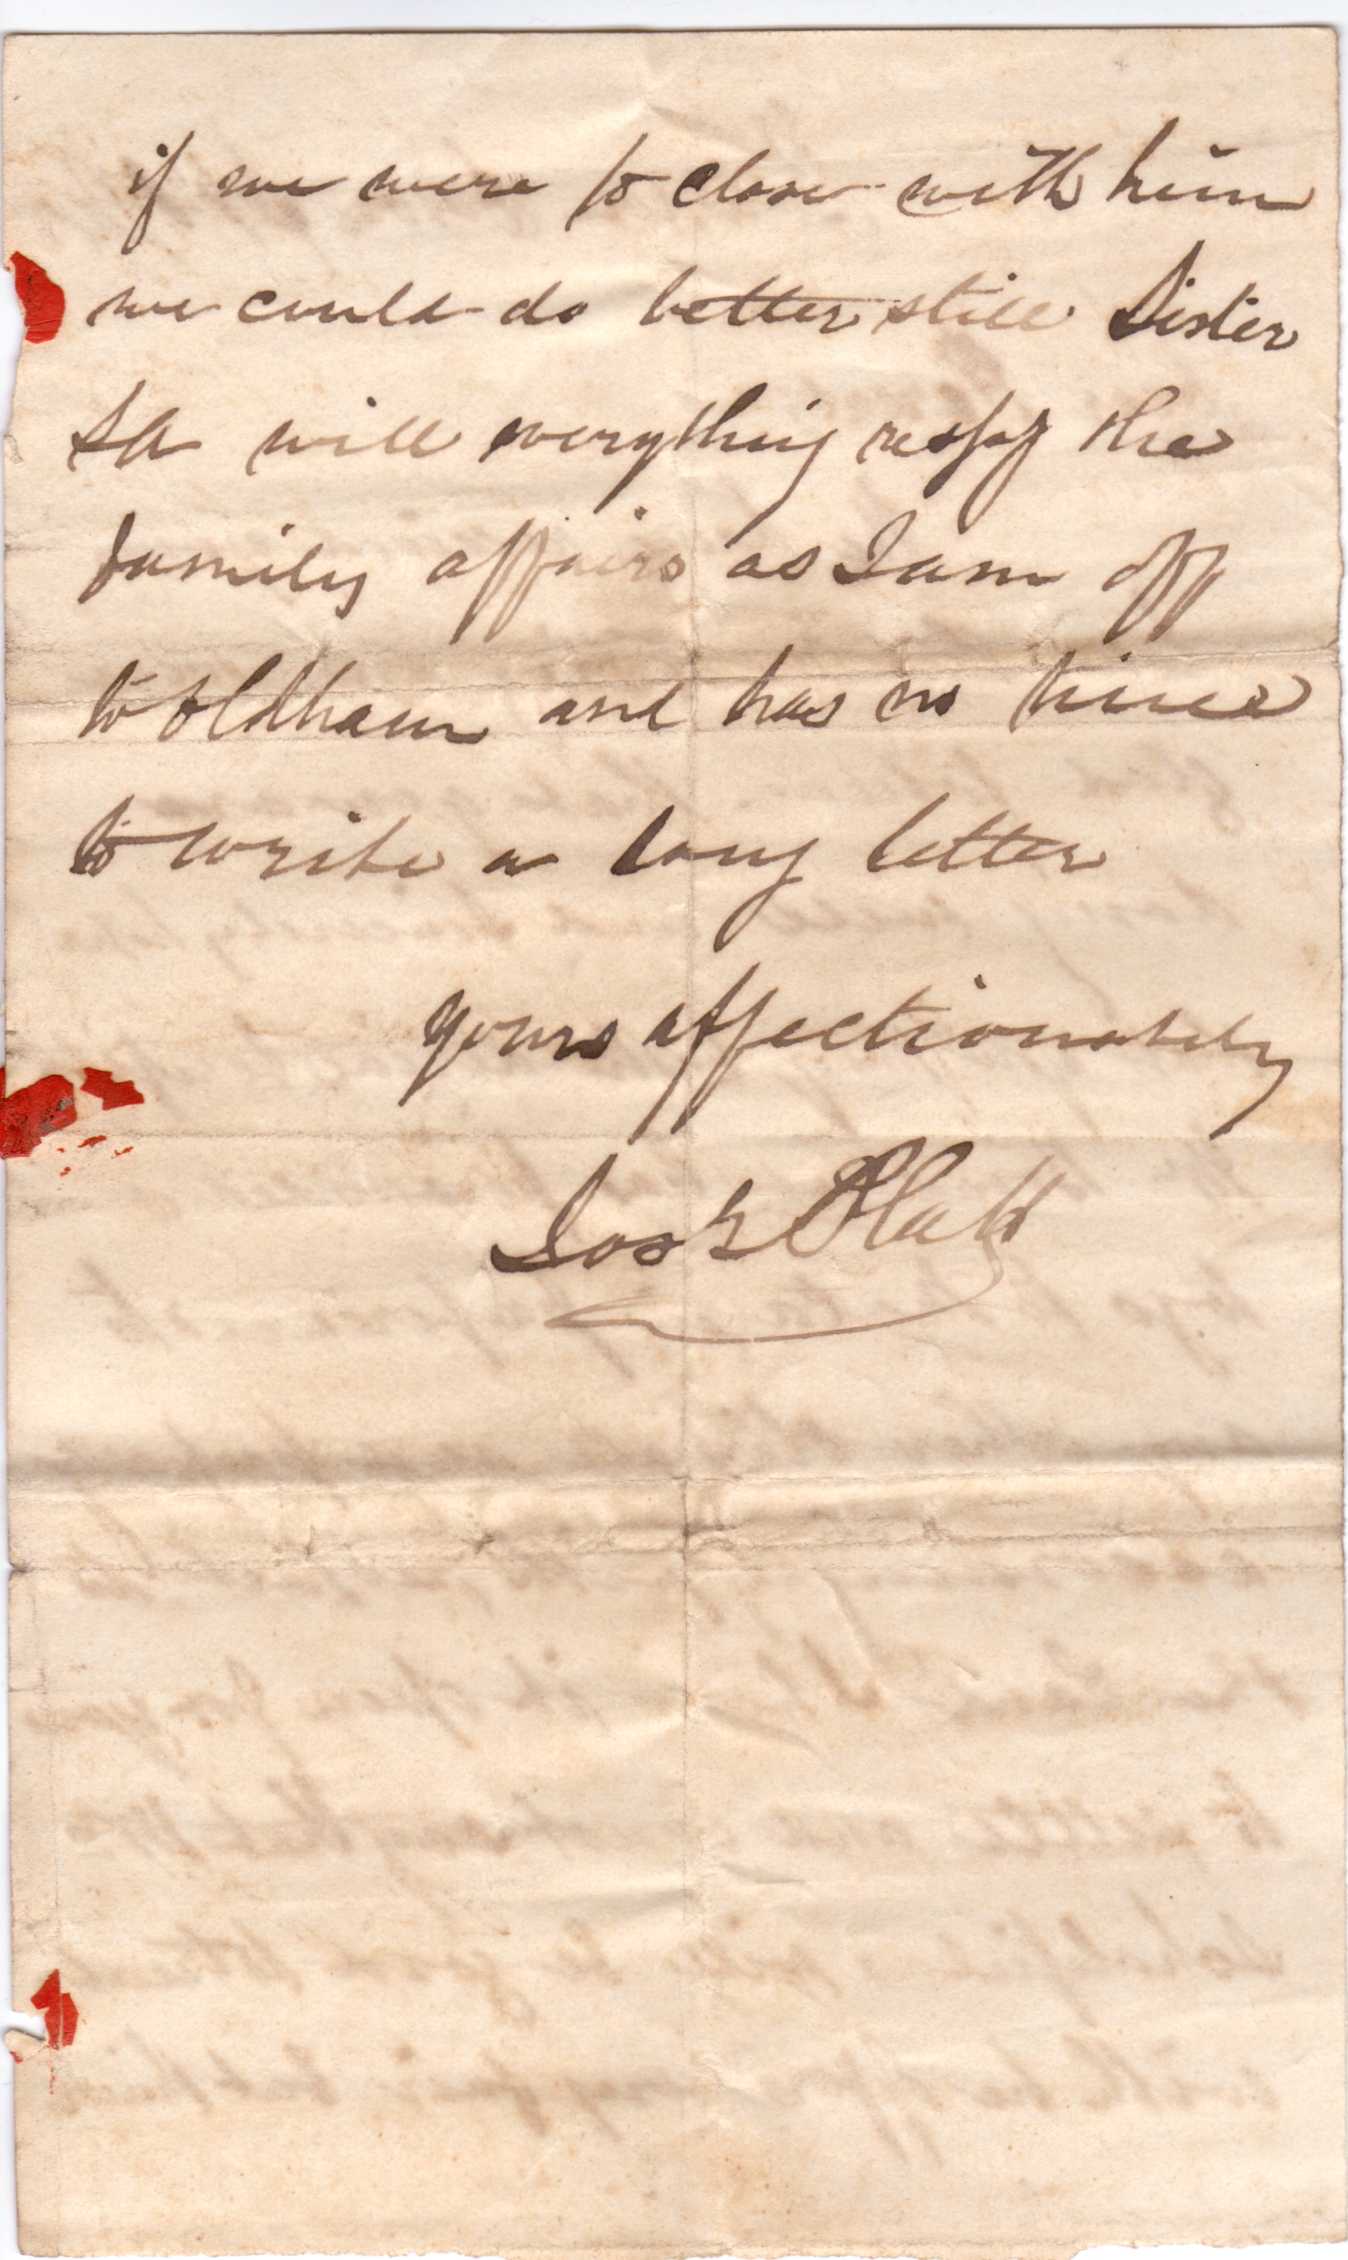 if we were to close with him
we could do better still Sister
SA will everything respg the
family affairs as I am off
to Oldham and has no time
to write a long letter
yours affectionately
Platt